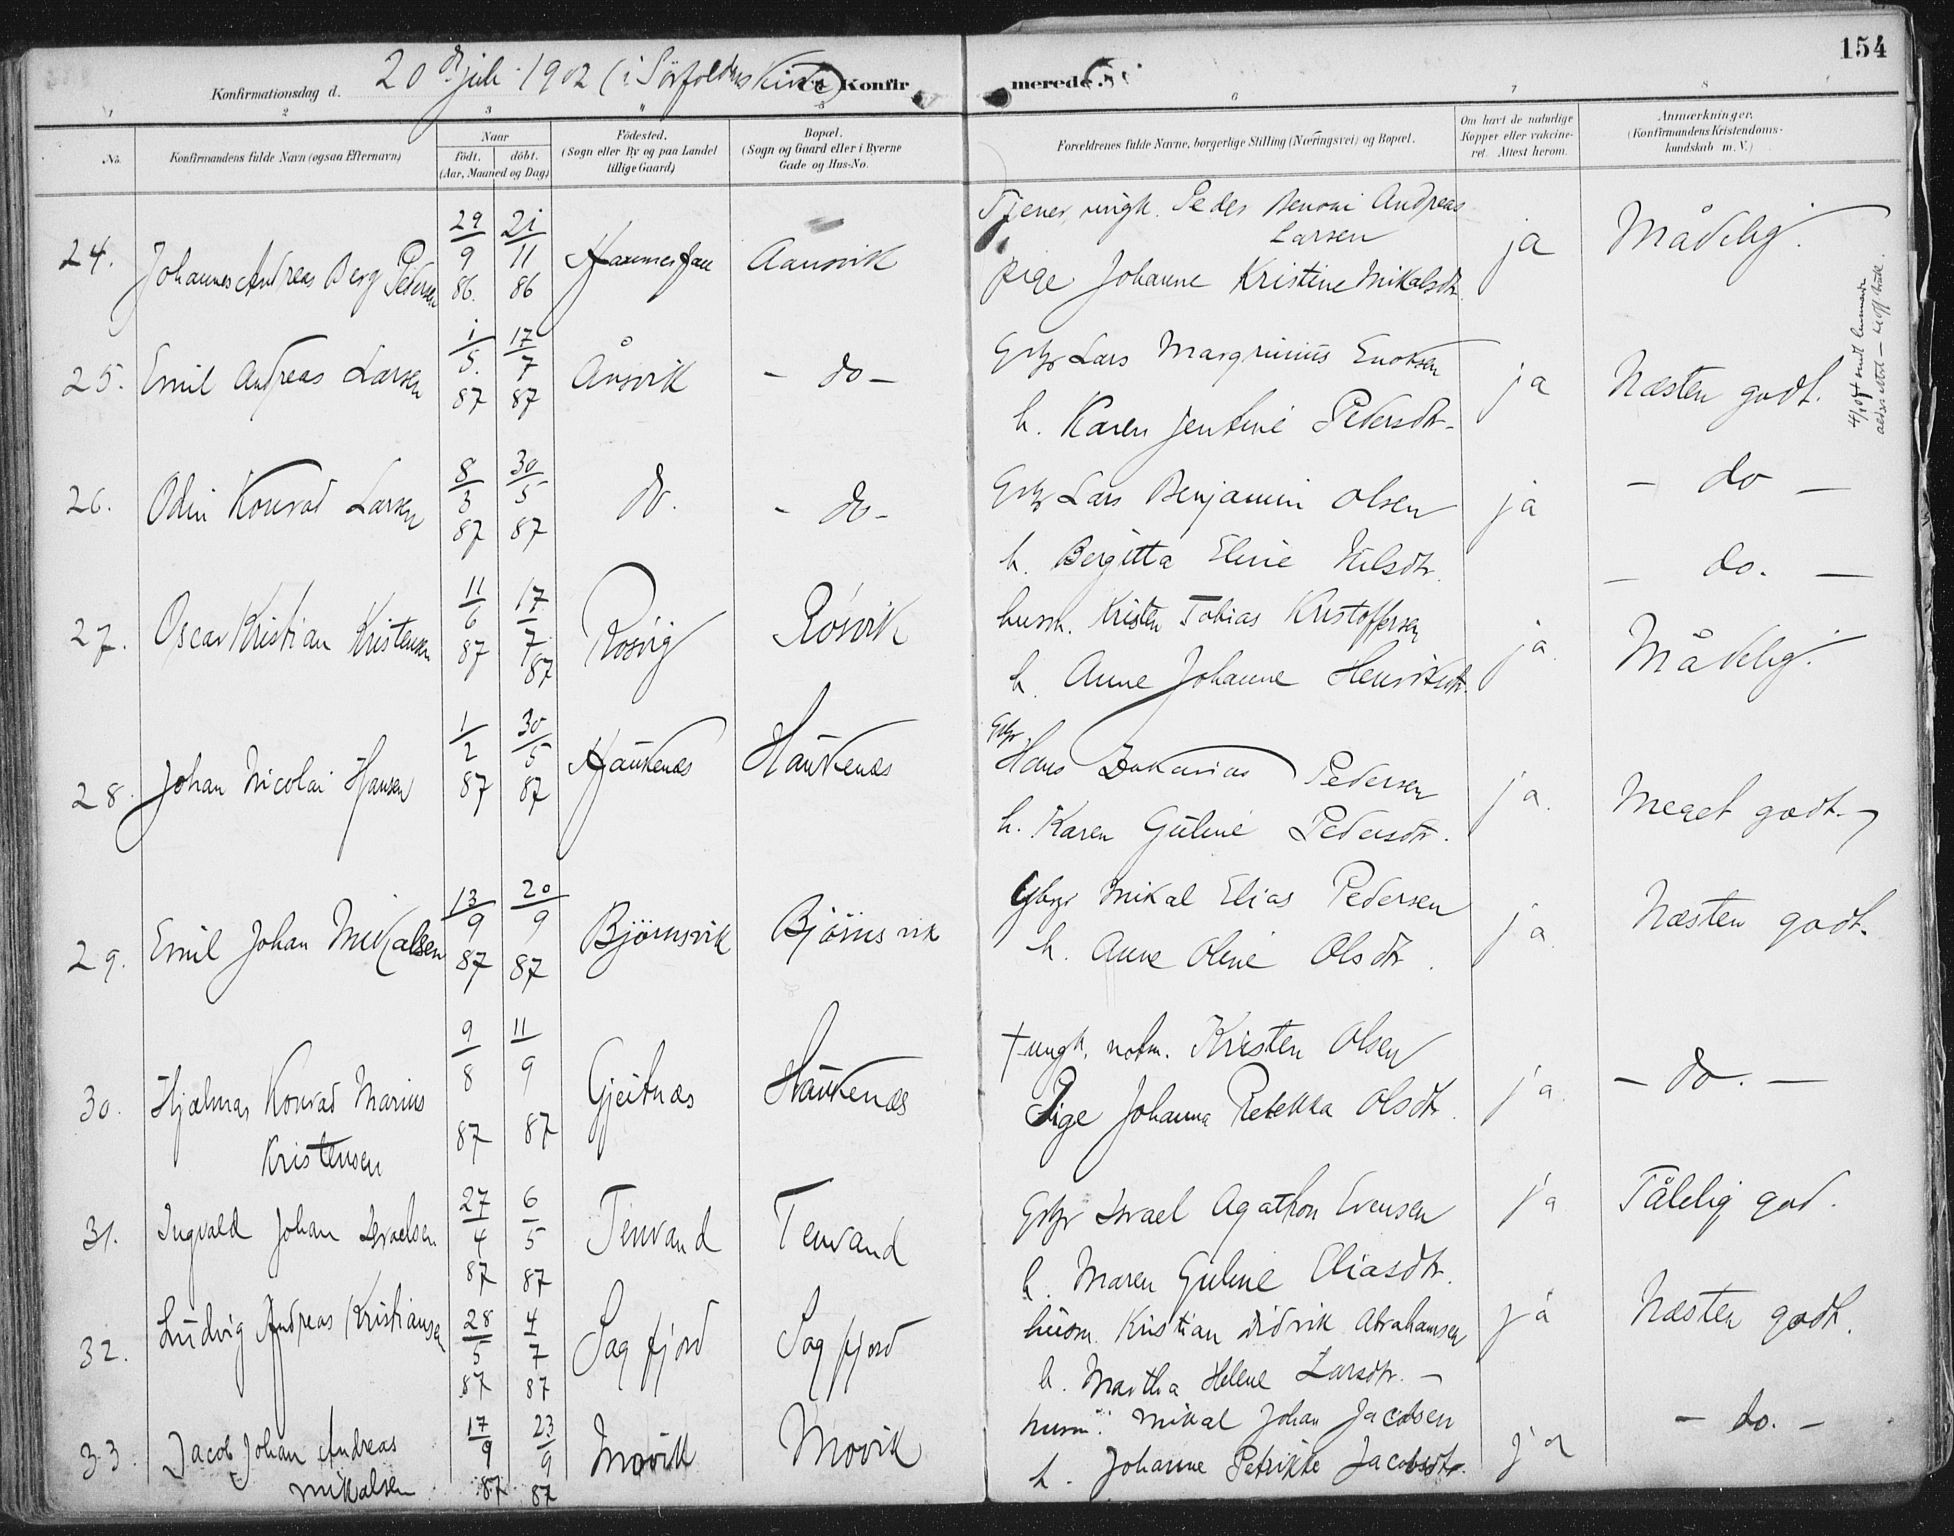 154
Konfirmationsdag d. 20 de juli 1902 (i Sørfoldens Kirke) Konfirmerede
1 2 3 " 5 6 7 8
No.
Konfirmandens fulde Navn (ogsaa Efternavn)
Naar
født. døbt.
(Aar, Maaned og Dag)
Fødested.
(Sogn eller By og paa Landet
tillige Gaard)
Bopæl.
(Sogn og Gaard eller i Byerne
Gade og Hus-No.
Forældrenes fulde Navne, borgerlige Stilling (Næringsvei) og Bopæl.
Om havt de naturlige
Kopper eller vakcine-
ret. Attest herom.
Anmærkninger.
(Konfirmandens Kristendoms-
kundskab m. V.)
24. Johannes Andreas Berg Pedersen 29/9 86. 21/11 86 Aansvik
Tjener, ungk. Peder Benoni Andreas
Larsen
pige Johanne Kristine Mikalsdtr.
ja Mådelig.
25. Emil Andreas Larsen 1/5. 87 17/7 87 Ånsvik - do -
Gbr Lars Margrinius Enoksen
h. Karen Jentine Pedersdtr-
ja Næsten godt.
26. Odin Konrad Larsen 8/3 87 30/5 87 do. - do -
Gbr Lars Benjamin Olsen
h. Bergitta Eline Nilsdtr.
ja - do -
- do. -
27. Oscar Kristian Kristensen 11/6 87 17/7 87 Rosvig Røsvik
husm. Kristen Tobias Kristoffersen
h. Anne Johanne Henriksdtr.
ja. Mådelig.
28. Johan Nicolai Hansen 1/2 87 30/5 87 Haukenæs Haukenæs
Gbr
Hans Zakarias Pedersen
h. Karen Guline Pedersdtr.
ja. Meget godt.
29. Emil Johan Mikalsen 13/9 87 20/9 87 Bjørnsvik Bjørnsvik
Gbr Mikal Elias Pedersen
h. Anne Oline Olsdtr.
ja. Næsten godt.
30. Hjalmar Konrad Marius
Kristensen
9/8 87 11/9 87 Gjeitnæs Haukenæs
† ungk. notm. Kristen Olsen
Pige Johanna Rebekka Olsdtr.
ja. - do. -
31. Ingvald Johan Israelsen 27/4 87 6/5 87 Tenvand Tenvand
Gbr Israel Agathon Evensen
h. Maren Guline Eliasdtr.
ja Tålelig god.
32. Ludvig Andreas Kristiansen 28/5 87 4/7 87 Sagfjord Sagfjord
husm. Kristian Didrik Abrahamsen
h. Martha Helene Larsdtr. -
ja Næsten godt.
33. Jacob Johan Andreas
Mikalsen
17/9 87. 23/9 87 Movik Movik
husm. Mikal Johan Jacobsen
h. Johanne Petrikke Jacobsdtr.
ja - do. -